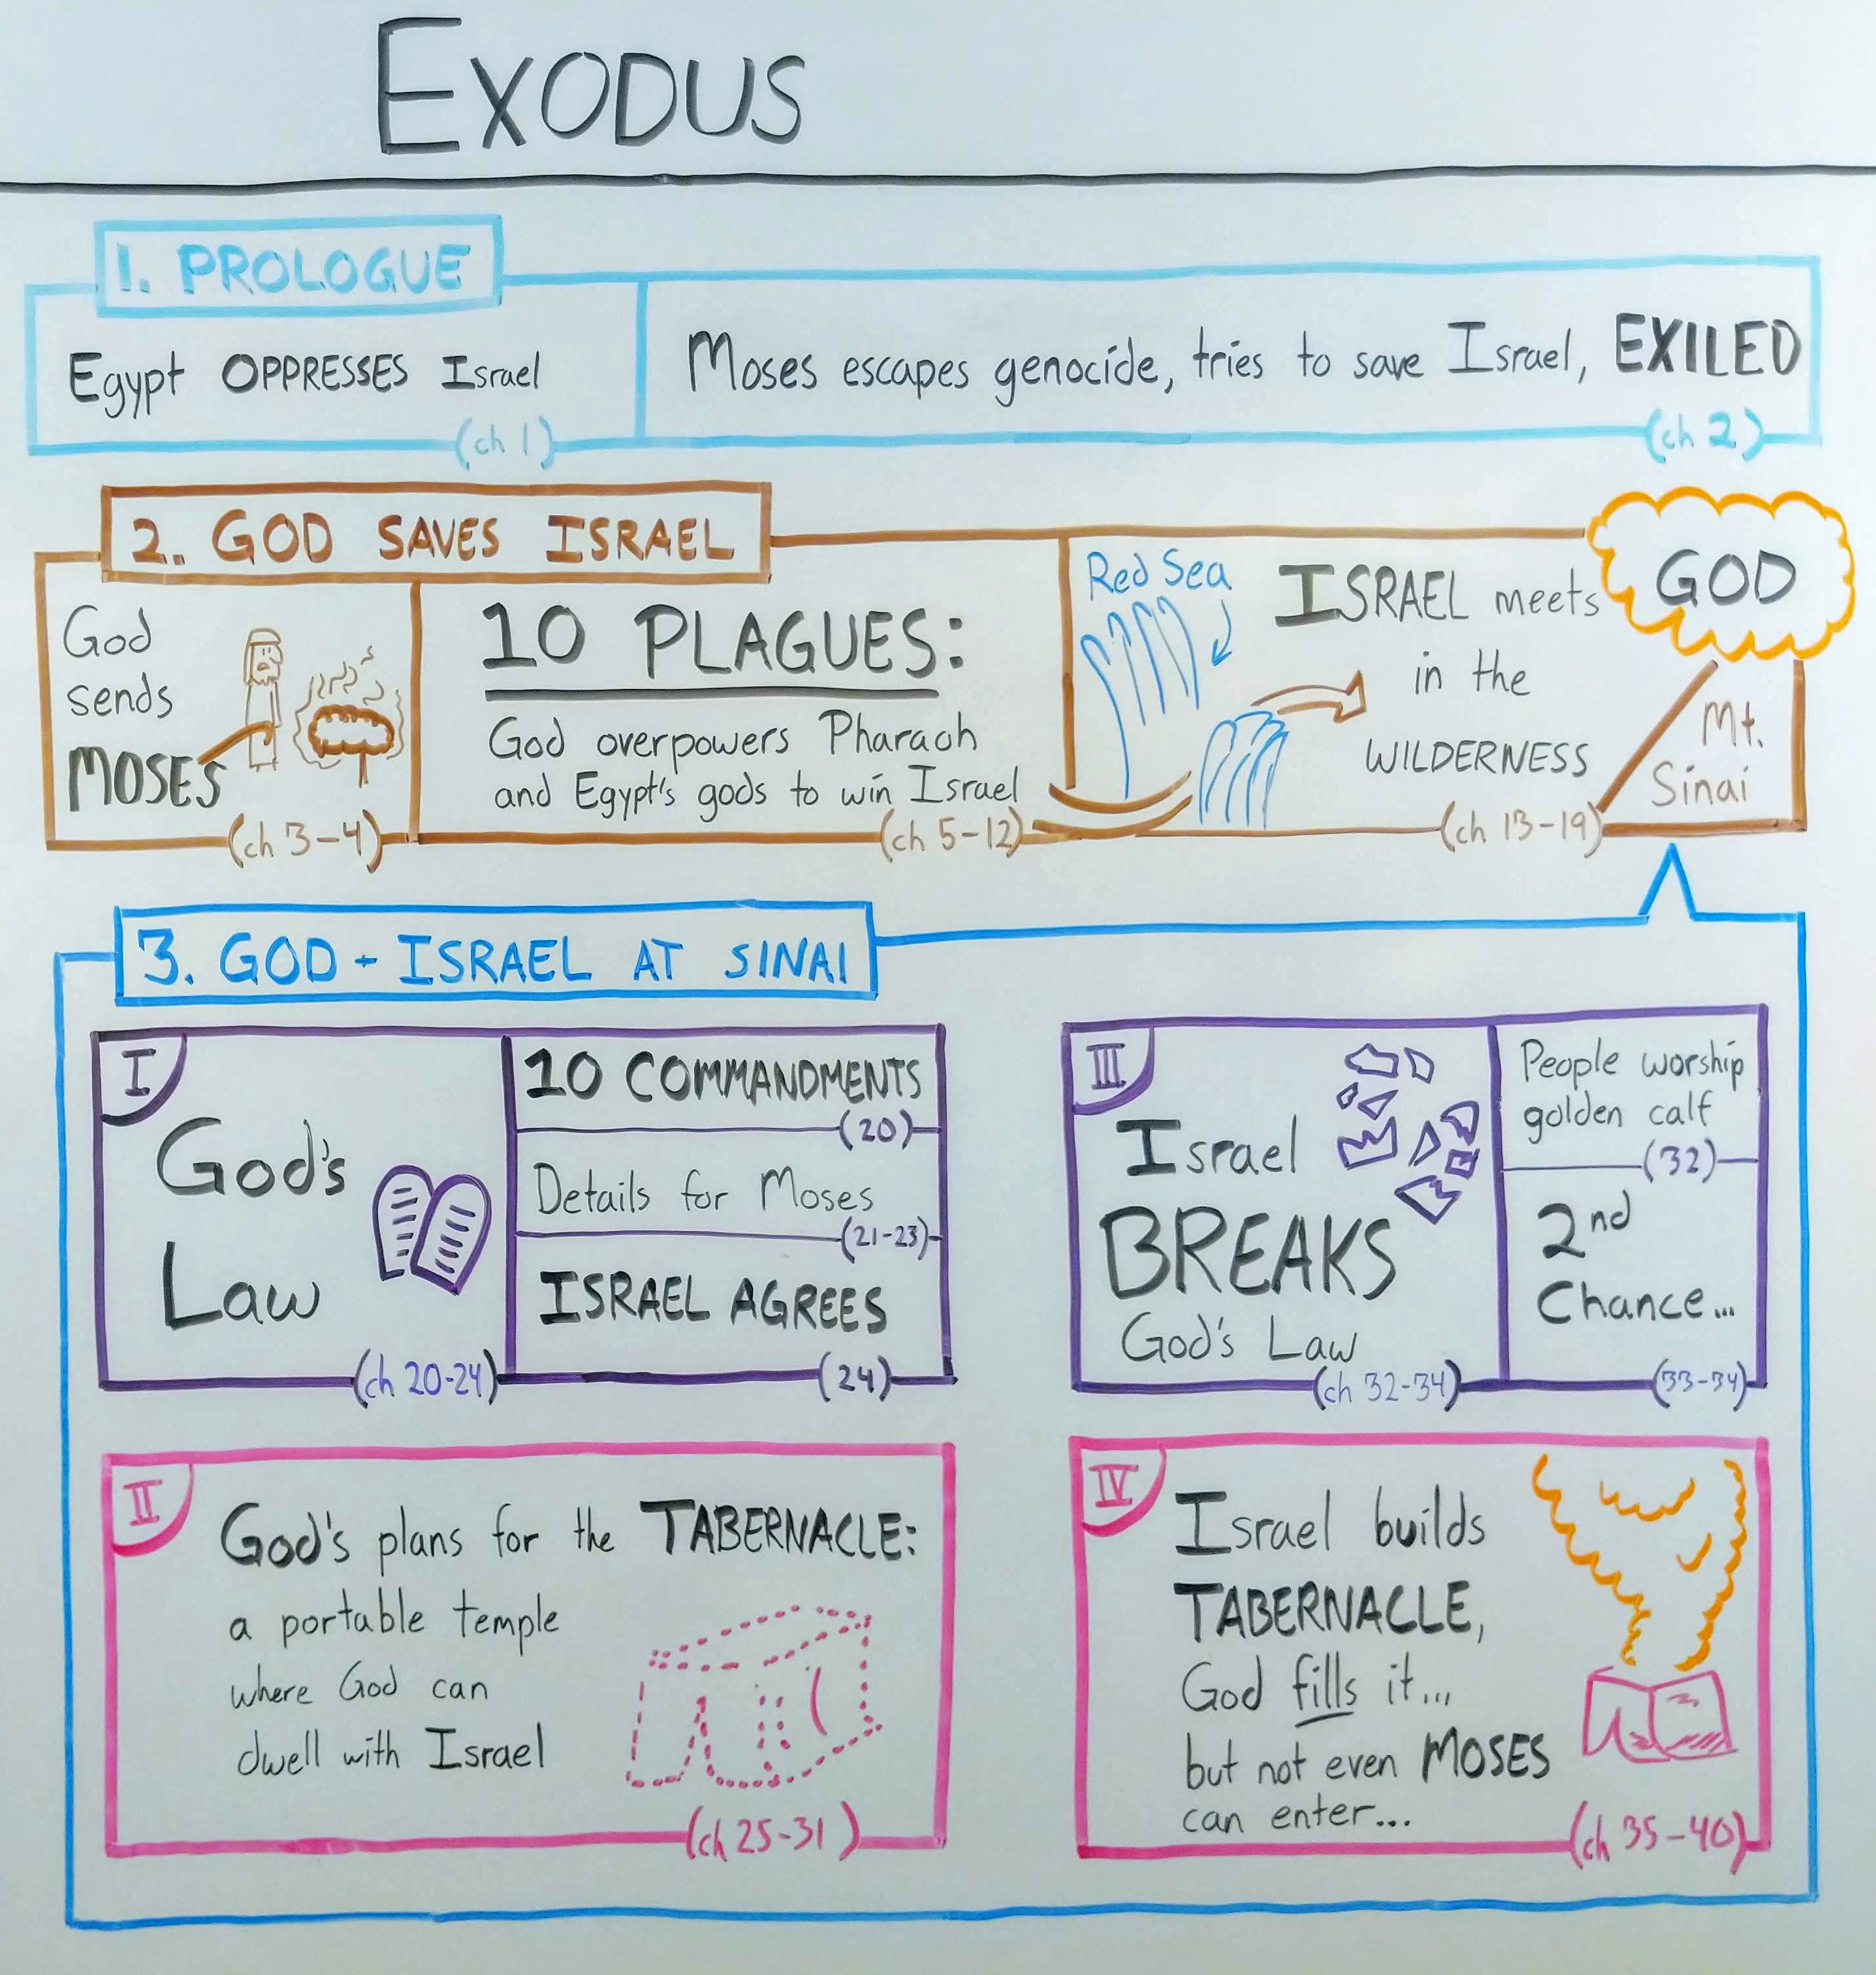 EXODUS
1. PROLOGUE
Egypt OPPRESSES Israel
(ch 1)
Moses escapes genocide, tries to save Israel, EXILED
(ch 2)
2. GOD SAVES ISRAEL
God
sends
MOSES
(ch 3-4)
10 PLAGUES:
God overpowers Pharaoh
and Egypt's gods to win Israel
(ch 5-12)
Red Sea
ISRAEL meets
in the
WILDERNESS
(ch 13-19)
GOD
Mt.
Sinai
3. GOD - ISRAEL AT SINAI
I
God's
Law
(ch 20-24)
10 COMMANDMENTS
(20)
Details for Moses
(21-23)
ISRAEL AGREES
(24)
II
God's plans for the TABERNACLE:
a portable temple
where God can
dwell with Israel
(ch 25-31)
III
Israel
BREAKS
God's Law
(ch 32-34)
People worship
golden calf
(32)
2nd
Chance...
(33-34)
IV
Israel builds
TABERNACLE,
God fills it...
but not even MOSES
can enter...
(ch 35-40)